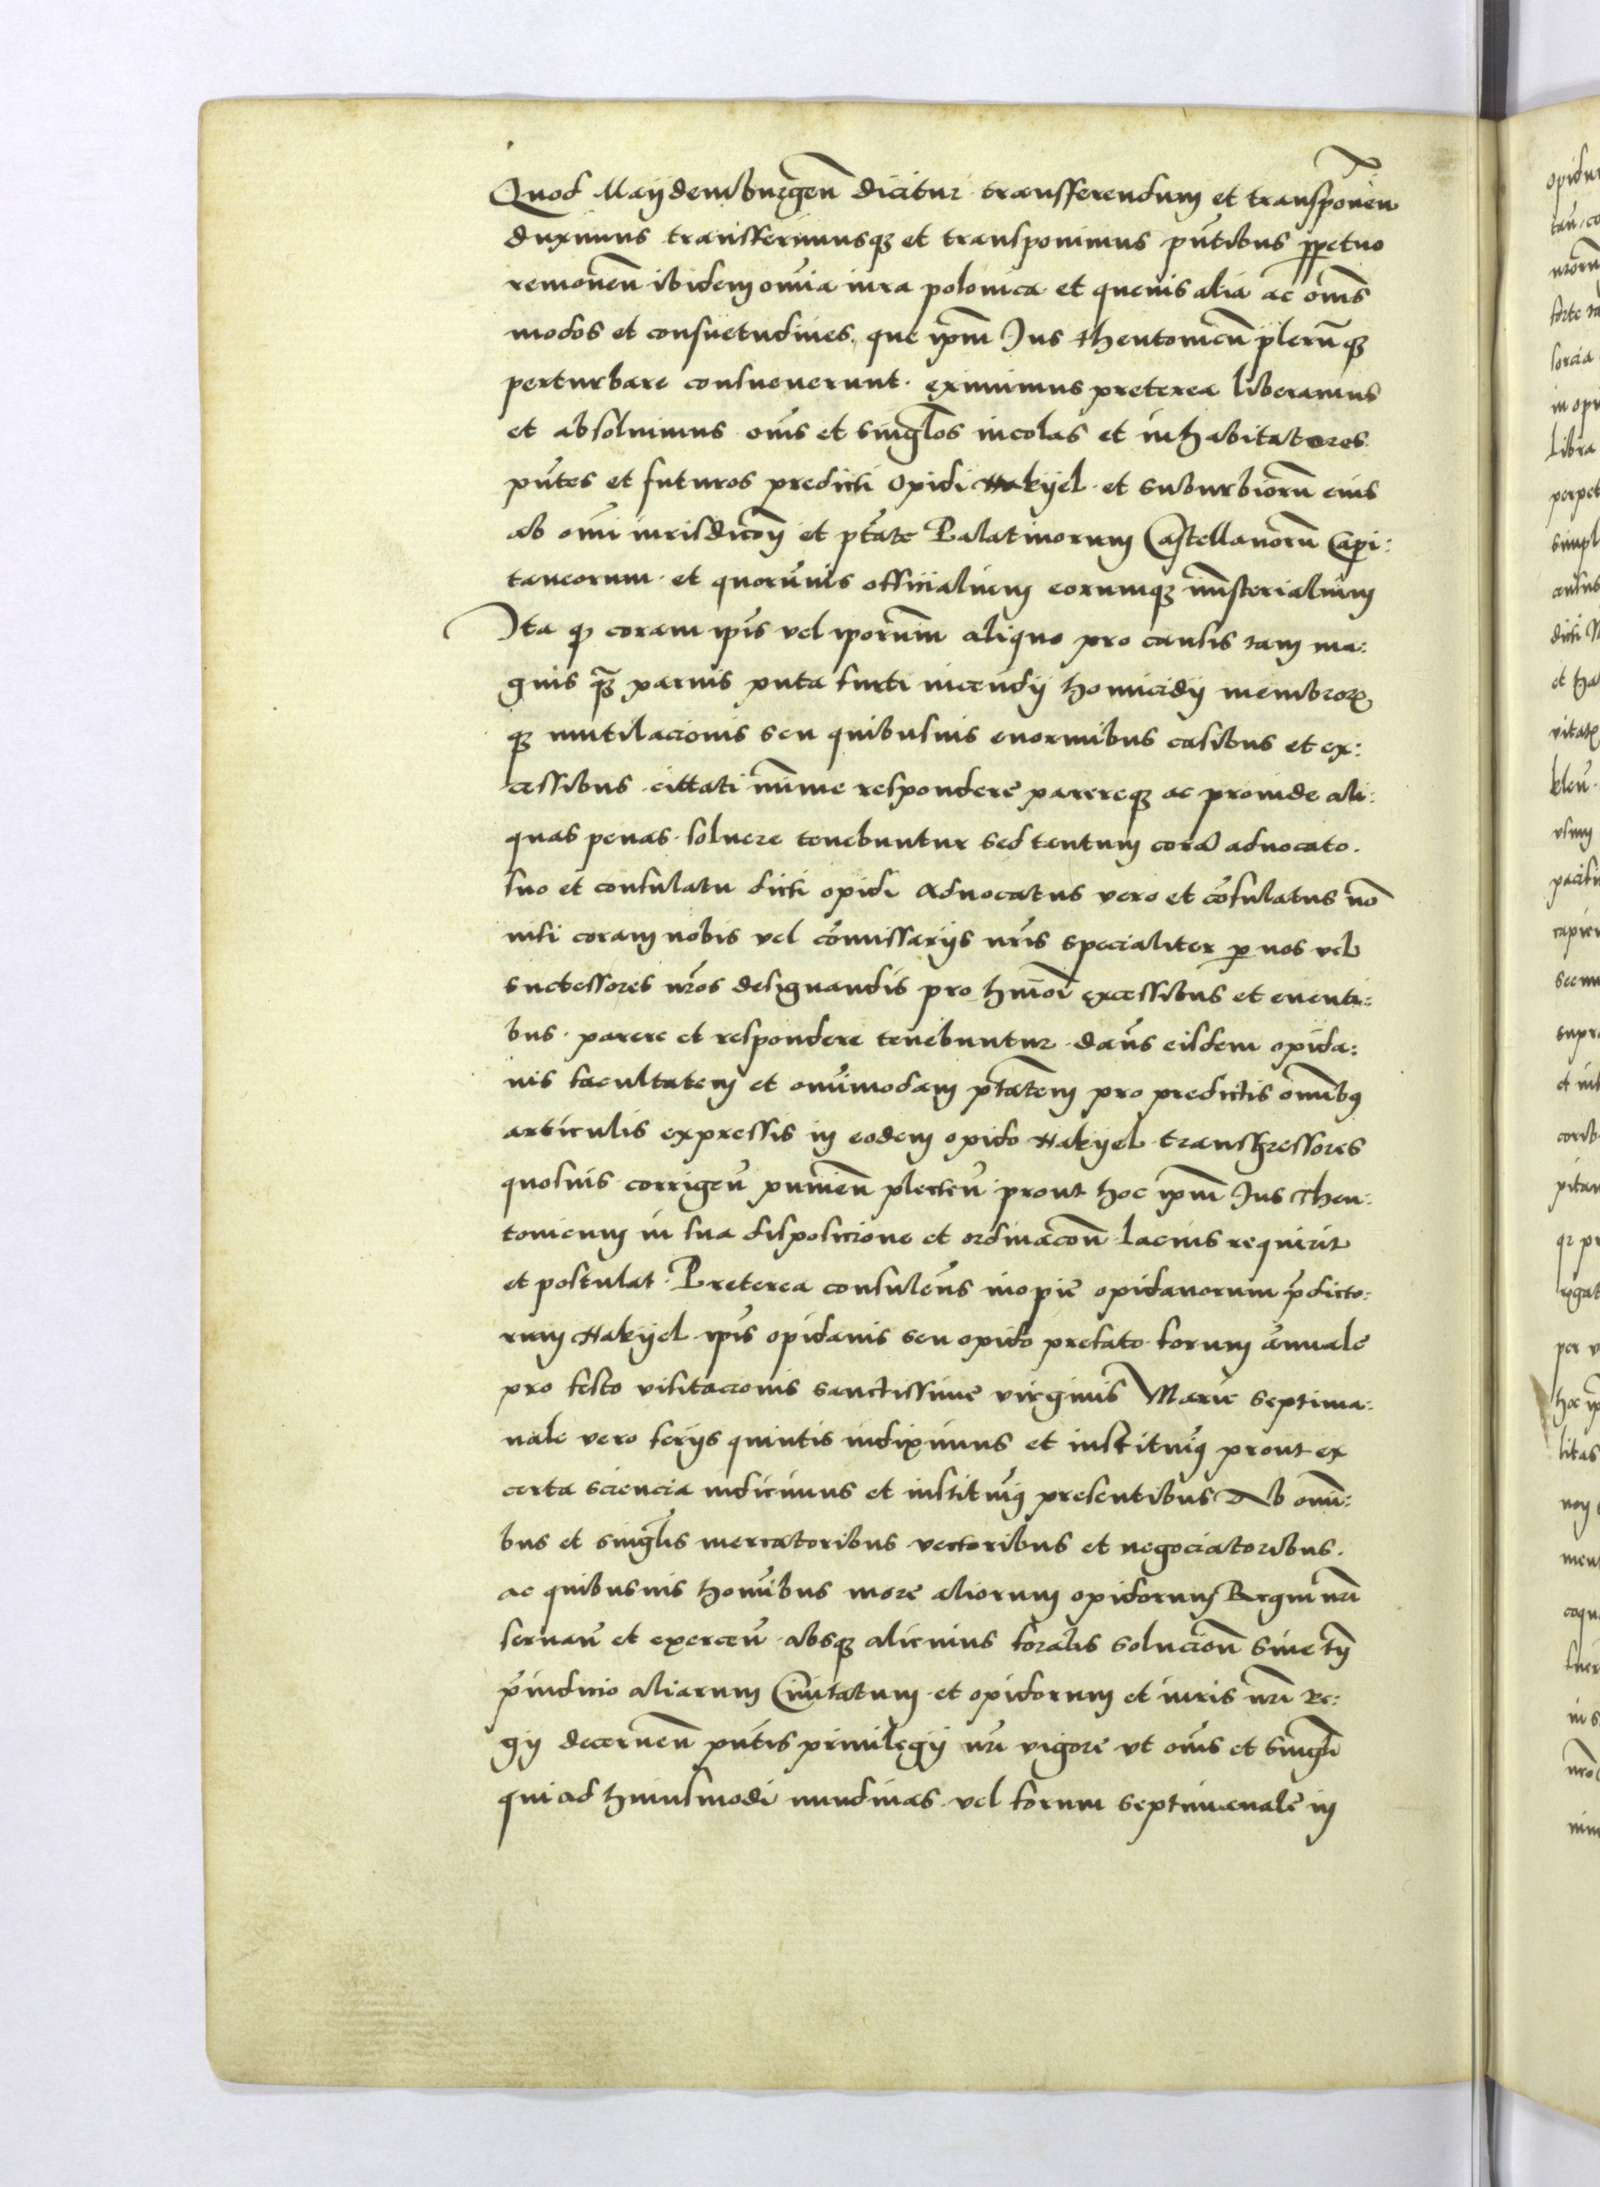 Quod Maydemburgeñ dicitur transferendum et transponeñ
duximus transferimusqȝ et transponimus pñtibus ꝑpetuo
remoueñ ibidem omĩa iura polonica et queuis alia ac om̃s
modos et consuetudines que ip̃m Jus theutonicũ plerũqȝ
perturbare consueuerunt · eximimus preterea liberamus
et absoluimus om̃s et singl̃os incolas et inhabitatores
pñtes et futuros predicti opidi Hakijel et suburbiorũ eius
ab omĩ iurisdicoñ et ptãte Palatinorum Castellanorũ Capi:
taneorum et quorũuis officialium eorumqȝ mĩsterialium
Ita qȝ coram ip̃is vel ipõrum aliquo pro causis tam ma:
gnis qȝ̃ paruis puta furti incendij homicidij membroꝝ
qȝ mutilacionis seu quibusuis enormibus casibus et ex:
cessibus cittati mĩme respondere parereqȝ ac proinde ali:
quas penas soluere tenebuntur sed tantum corã aduocato
suo et consulatu dicti opidi Aduocatus vero et cõsulatus nõ
nisi coram nobis vel cõmissarijs nr̃is specialiter ꝑ nos vel
successores nr̃os designandis pro hmõi excessibus et euenti:
bus parere et respondere tenebuntur · dañs eisdem opida:
nis facultatem et omĩmodam ptãtem pro predictis omĩbꝰ
articulis expressis in eodem opido Hakijel transgressores
quosuis corrigeñ punieñ plecteñ prout hoc ip̃m Jus theu:
tonicum in sua disposicione et ordinacoñ lacius requirit
et postulat · Preterea consuleñs inopie opidanorum p̃dicto:
rum Hakijel ip̃is opidanis seu opido prefato forum annuale
pro festo visitacionis sanctissime virginis Marie septima:
nale vero ferijs quintis indiximus et instituĩꝰ prout ex
certa sciencia indicimus et instituĩꝰ presentibus Ab omĩ:
bus et singl̃is mercatoribus vectoribus et negociatoribus
ac quibusuis homĩbus more aliorum opidorum Regni nr̃i
seruañ et exerceñ absqȝ alicuius foralis solucioñ sine tñ
p̃iudicio aliarum Ciuitatum et opidorum et iuris nr̃i Re:
gij decerneñ pñtis priuilegij nr̃i vigore vt om̃s et singl̃i
qui ad huiusmodi nundinas vel forum septimanale in